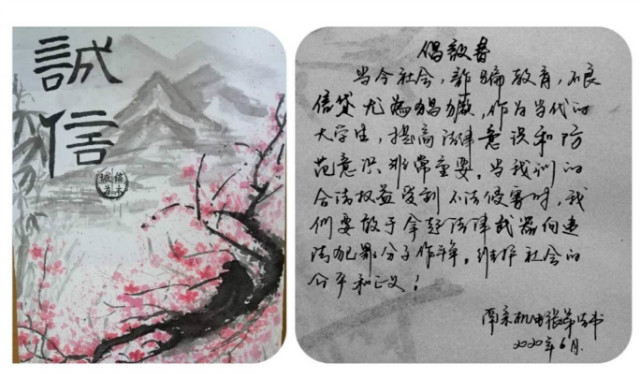 誠
信
倡议书
当今社会，诈骗教育，不良
信贷尤为猖獗，作为当代的
大学生，提高法律意识和防
范意识非常重要。当我们的
合法权益受到不法侵害时，我
们要敢于拿起法律武器向违
法犯罪分子作斗争，维护社会的
公平和正义！
2020年6月.